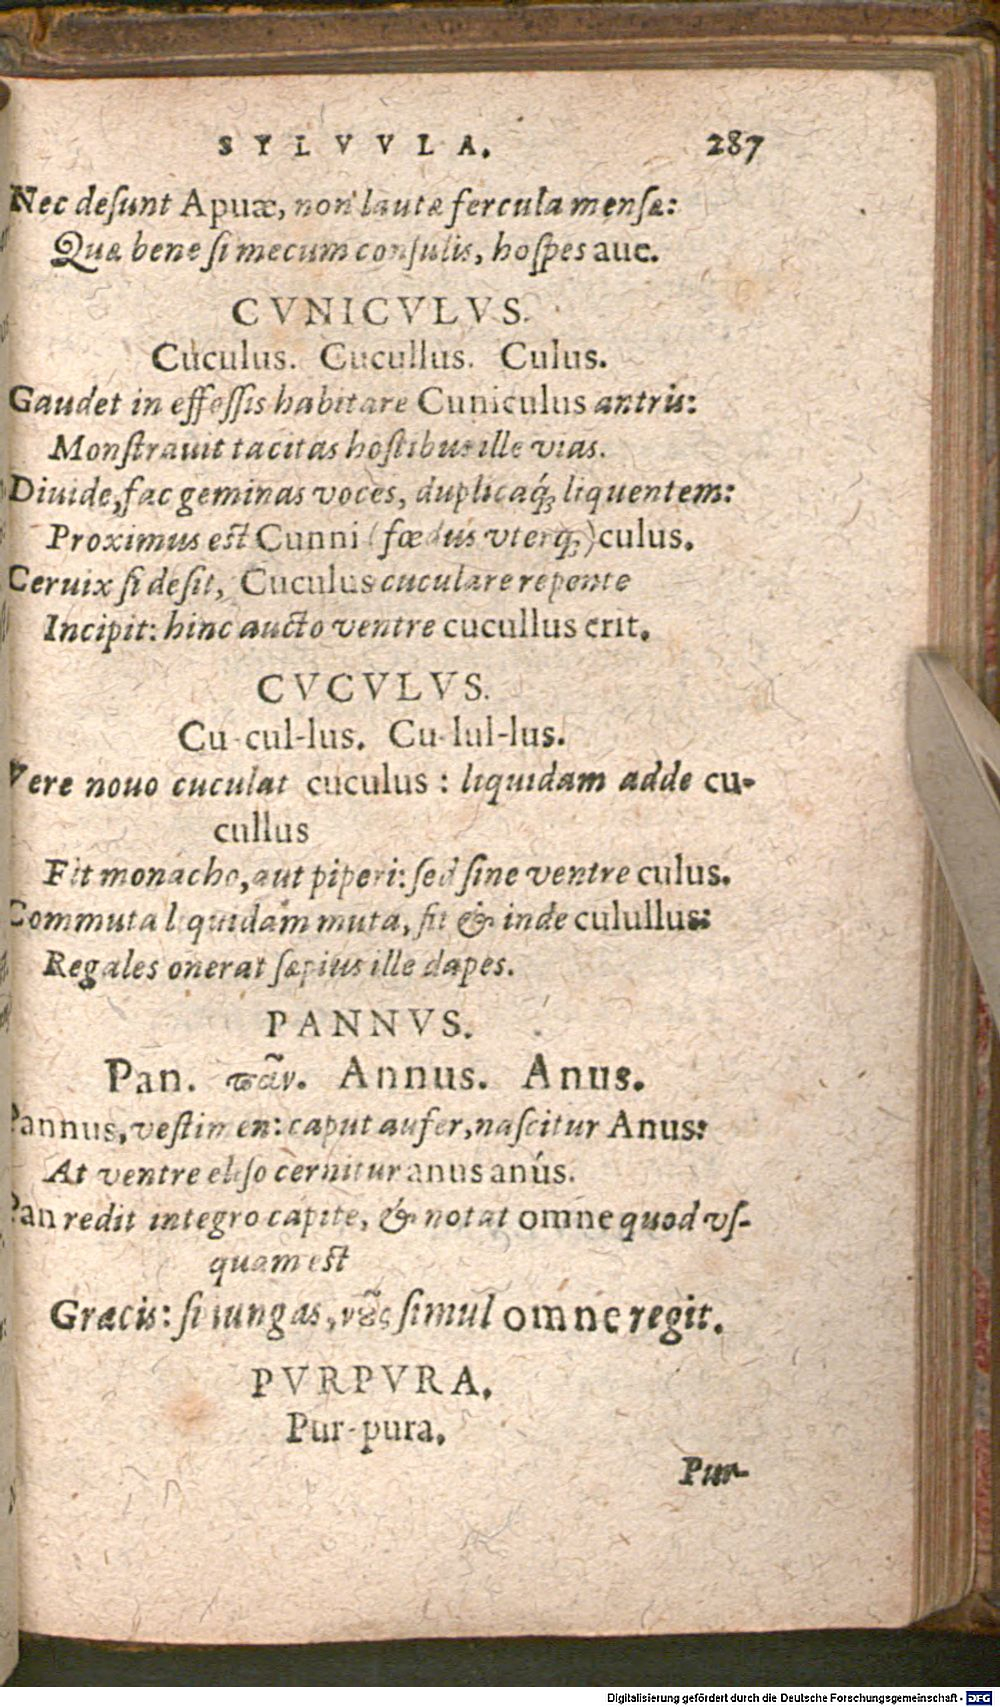 SYLVVLA. 287
Nec desunt Apuæ, non lautæ fercula mensæ:
Quæ bene si mecum consulis, hospes aue.
CVNICVLVS.
Cuculus. Cucullus. Culus.
Gaudet in effossis habitare Cuniculus antris:
Monstrauit tacitas hostibus ille vias.
Diuide, fac geminas voces, duplicaq́; liquentem:
Proximus est Cunni (fœdus vterq;) culus.
Ceruix si desit, Cuculus cuculare repente
Incipit: hinc aucto ventre cucullus erit.
CVCVLVS.
Cu-cul-lus. Cu-lul-lus.
Vere nouo cuculat cuculus: liquidam adde cu-
cullus
Fit monacho, aut piperi: sed sine ventre culus.
Commuta liquidam muta, fit & inde culullus:
Regales onerat sæpius ille dapes.
PANNVS.
Pan. πᾶν. Annus. Anus.
Pannus, vestimen: caput aufer, nascitur Anus:
At ventre eliso cernitur anus anús.
Pan redit integro capite, & notat omne quod vs-
quam est
Græcis: si iungas, νοῦς simul omne regit.
PVRPVRA.
Pur-pura.
Pur-
Digitalisierung gefördert durch die Deutsche Forschungsgemeinschaft - DFG